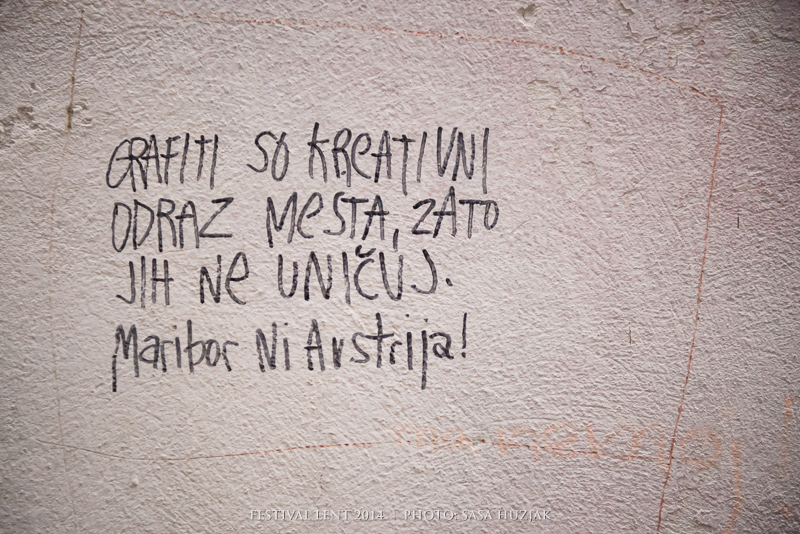 GRAFITI SO KREATIVNI
ODRAZ MESTA, ZATO
JIH NE UNIČUJ.
Maribor Ni Avstrija!
FESTIVAL LENT 2014 | PHOTO: SASA HUZJAK